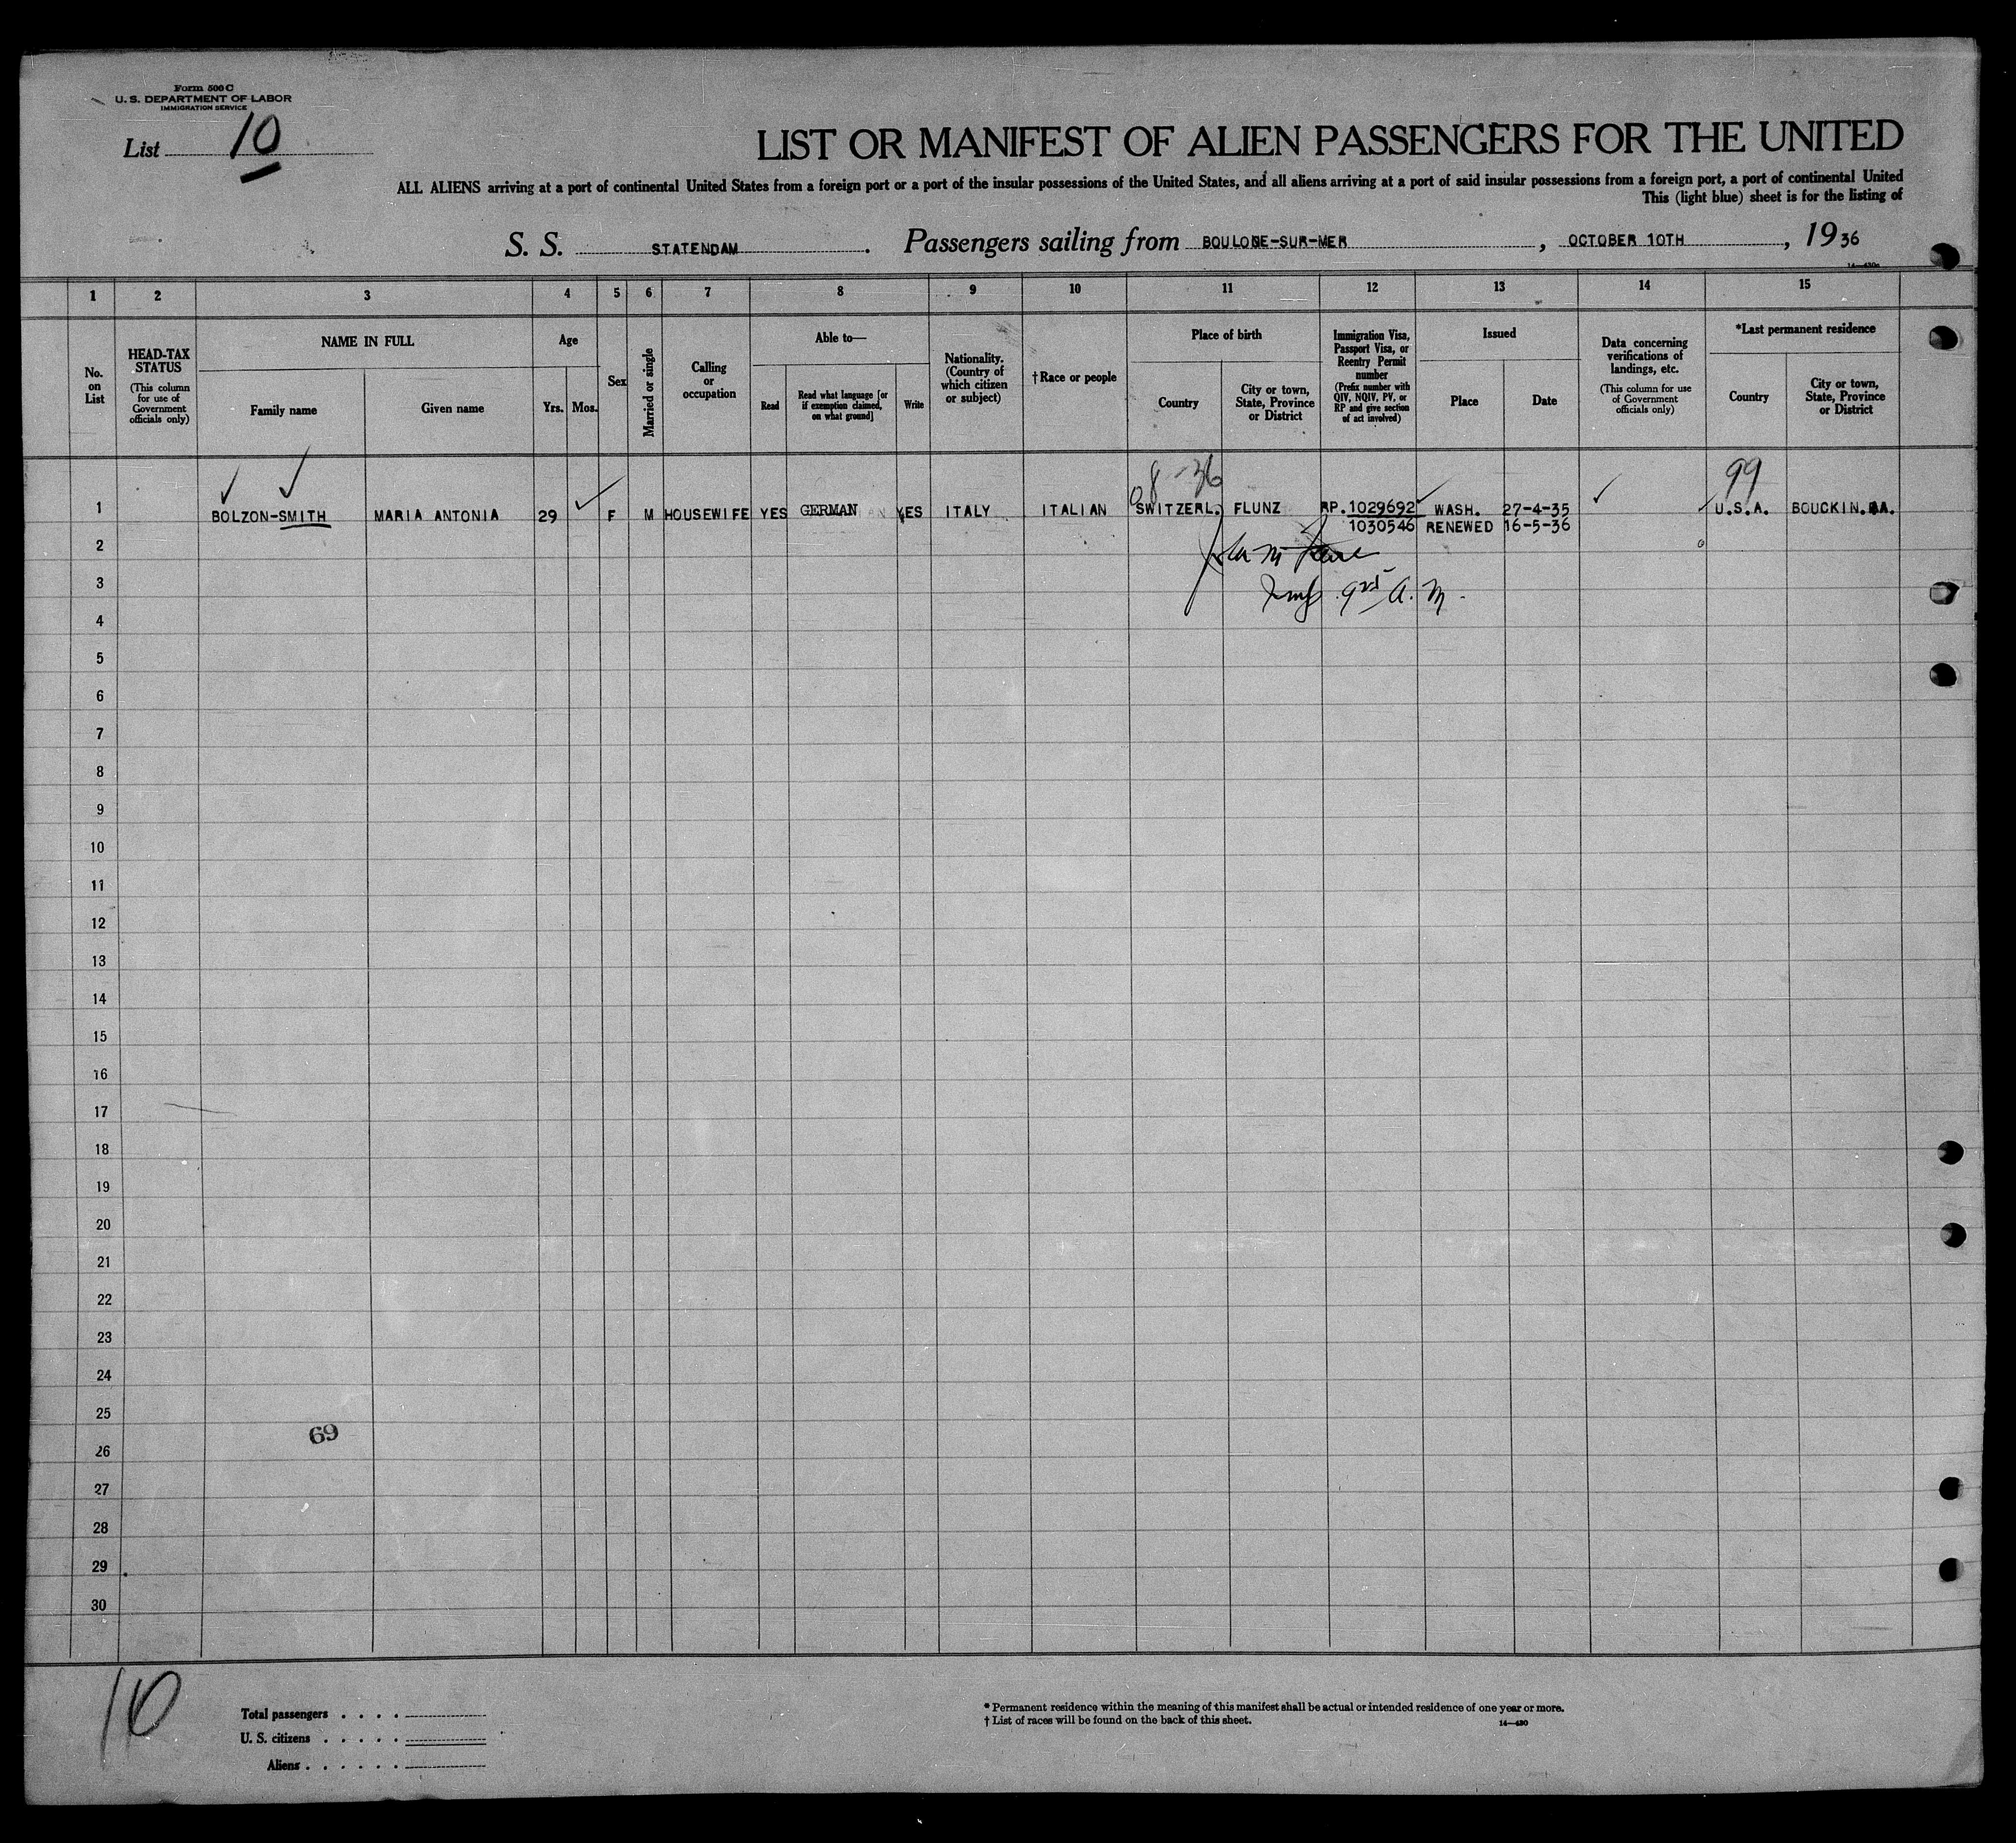 Form 500 C
U. S. DEPARTMENT OF LABOR
IMMIGRATION SERVICE
List 10
LIST OR MANIFEST OF ALIEN PASSENGERS FOR THE UNITED
ALL ALIENS arriving at a port of continental United States from a foreign port or a port of the insular possessions of the United States, and all aliens arriving at a port of said insular possessions from a foreign port, a port of continental United
This (light blue) sheet is for the listing of
S. S. STATENDAM. Passengers sailing from BOULONE-SUR-MER, OCTOBER 10TH, 1936
1 2 3 4 5 6 7 8 9 10 11 12 13 14 15
No. on List
HEAD-TAX STATUS
(This column for use of Government officials only)
NAME IN FULL
Family name
Given name
Age
Yrs. Mos.
Sex
Married or single
Calling or occupation
Able to—
Read
Read what language [or if exemption claimed, on what ground]
Write
Nationality. (Country of which citizen or subject)
†Race or people
Place of birth
Country
City or town, State, Province or District
Immigration Visa, Passport Visa, or Reentry Permit number
(Prefix number with QIV, NQIV, PV, or RP and give section of act involved)
Issued
Place
Date
Data concerning verifications of landings, etc.
(This column for use of Government officials only)
*Last permanent residence
Country
City or town, State, Province or District
8-36
99
1 BOLZON-SMITH MARIA ANTONIA 29 F M HOUSEWIFE YES GERMAN YES ITALY ITALIAN SWITZERL. FLUNZ RP.1029692 WASH. 27-4-35 U.S.A. BOUCKIN.
1030546 RENEWED 16-5-36
2
3
4
5
6
7
8
9
10
11
12
13
14
15
16
17
18
19
20
21
22
23
24
25
69
26
27
28
29
30
10
Total passengers . . . .
U. S. citizens . . . . .
Aliens . . . . . .
* Permanent residence within the meaning of this manifest shall be actual or intended residence of one year or more.
† List of races will be found on the back of this sheet.
14—430